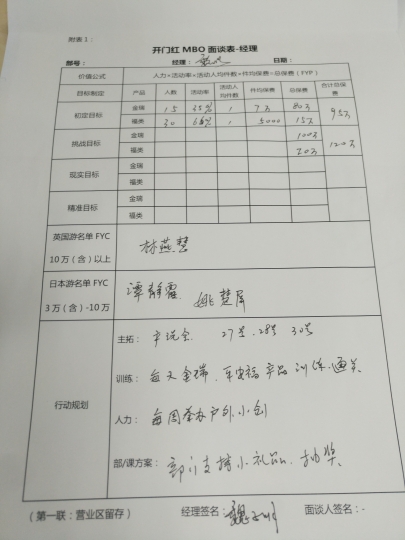 附表1:
开门红 MBO 面谈表-经理
部号: 经理: 日期:
价值公式 人力×活动率×活动人均件数×件均保费=总保费(FYP)
目标制定 产品 人数 活动率 活动人均件数 件均保费 总保费 合计总保费
初定目标 金瑞 15 35% 1 7万 80万 95万
福类 30 66% 1 5000 15万
挑战目标 金瑞 100万 120万
福类 20万
现实目标 金瑞
福类
精准目标 金瑞
福类
英国游名单 FYC 10万(含)以上 林燕慧
日本游名单 FYC 3万(含)-10万 谭静霞 姚慧屏
行动规划
主拓: 27号、28号 30号
训练: 每天金瑞、平安福产品训练、通关
人力: 每周举办户外小创
部/课方案: 部门支持小礼品、抽奖
(第一联:营业区留存) 经理签名: 面谈人签名:-